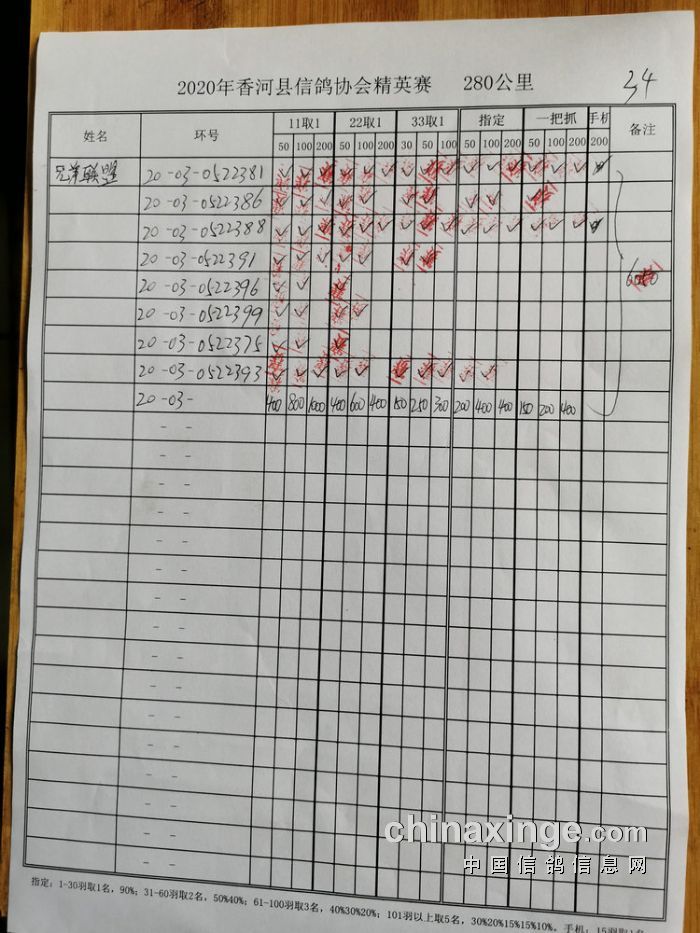 2020年香河县信鸽协会精英赛 280公里
34
姓名 环号 11取1 22取1 33取1 指定 一把抓 手机 备注
50 100 200 50 100 200 30 50 100 50 100 200 50 100 200 200
兄弟联盟 20-03-0522381
20-03-0522386
20-03-0522388
20-03-0522391
20-03-0522396
20-03-0522399
20-03-0522375
20-03-0522393
20-03- 400 800 1000 400 600 400 150 250 300 200 400 400 150 200 400
chinaxinge.com
中国信鸽信息网
指定：1-30羽取1名，90%；31-60羽取2名，50%40%；61-100羽取3名，40%30%20%；101羽以上取5名，30%20%15%15%10%。手机：15羽取1名